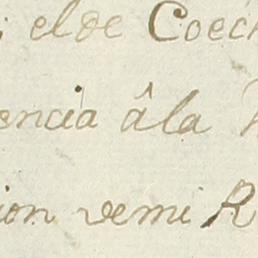 ; el de Coech
encia â la
ion de mi R